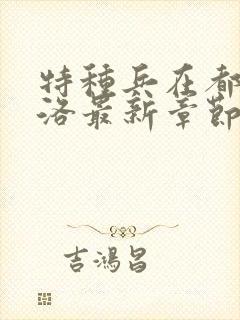 特種兵在都
洛最新章節
吉鴻昌